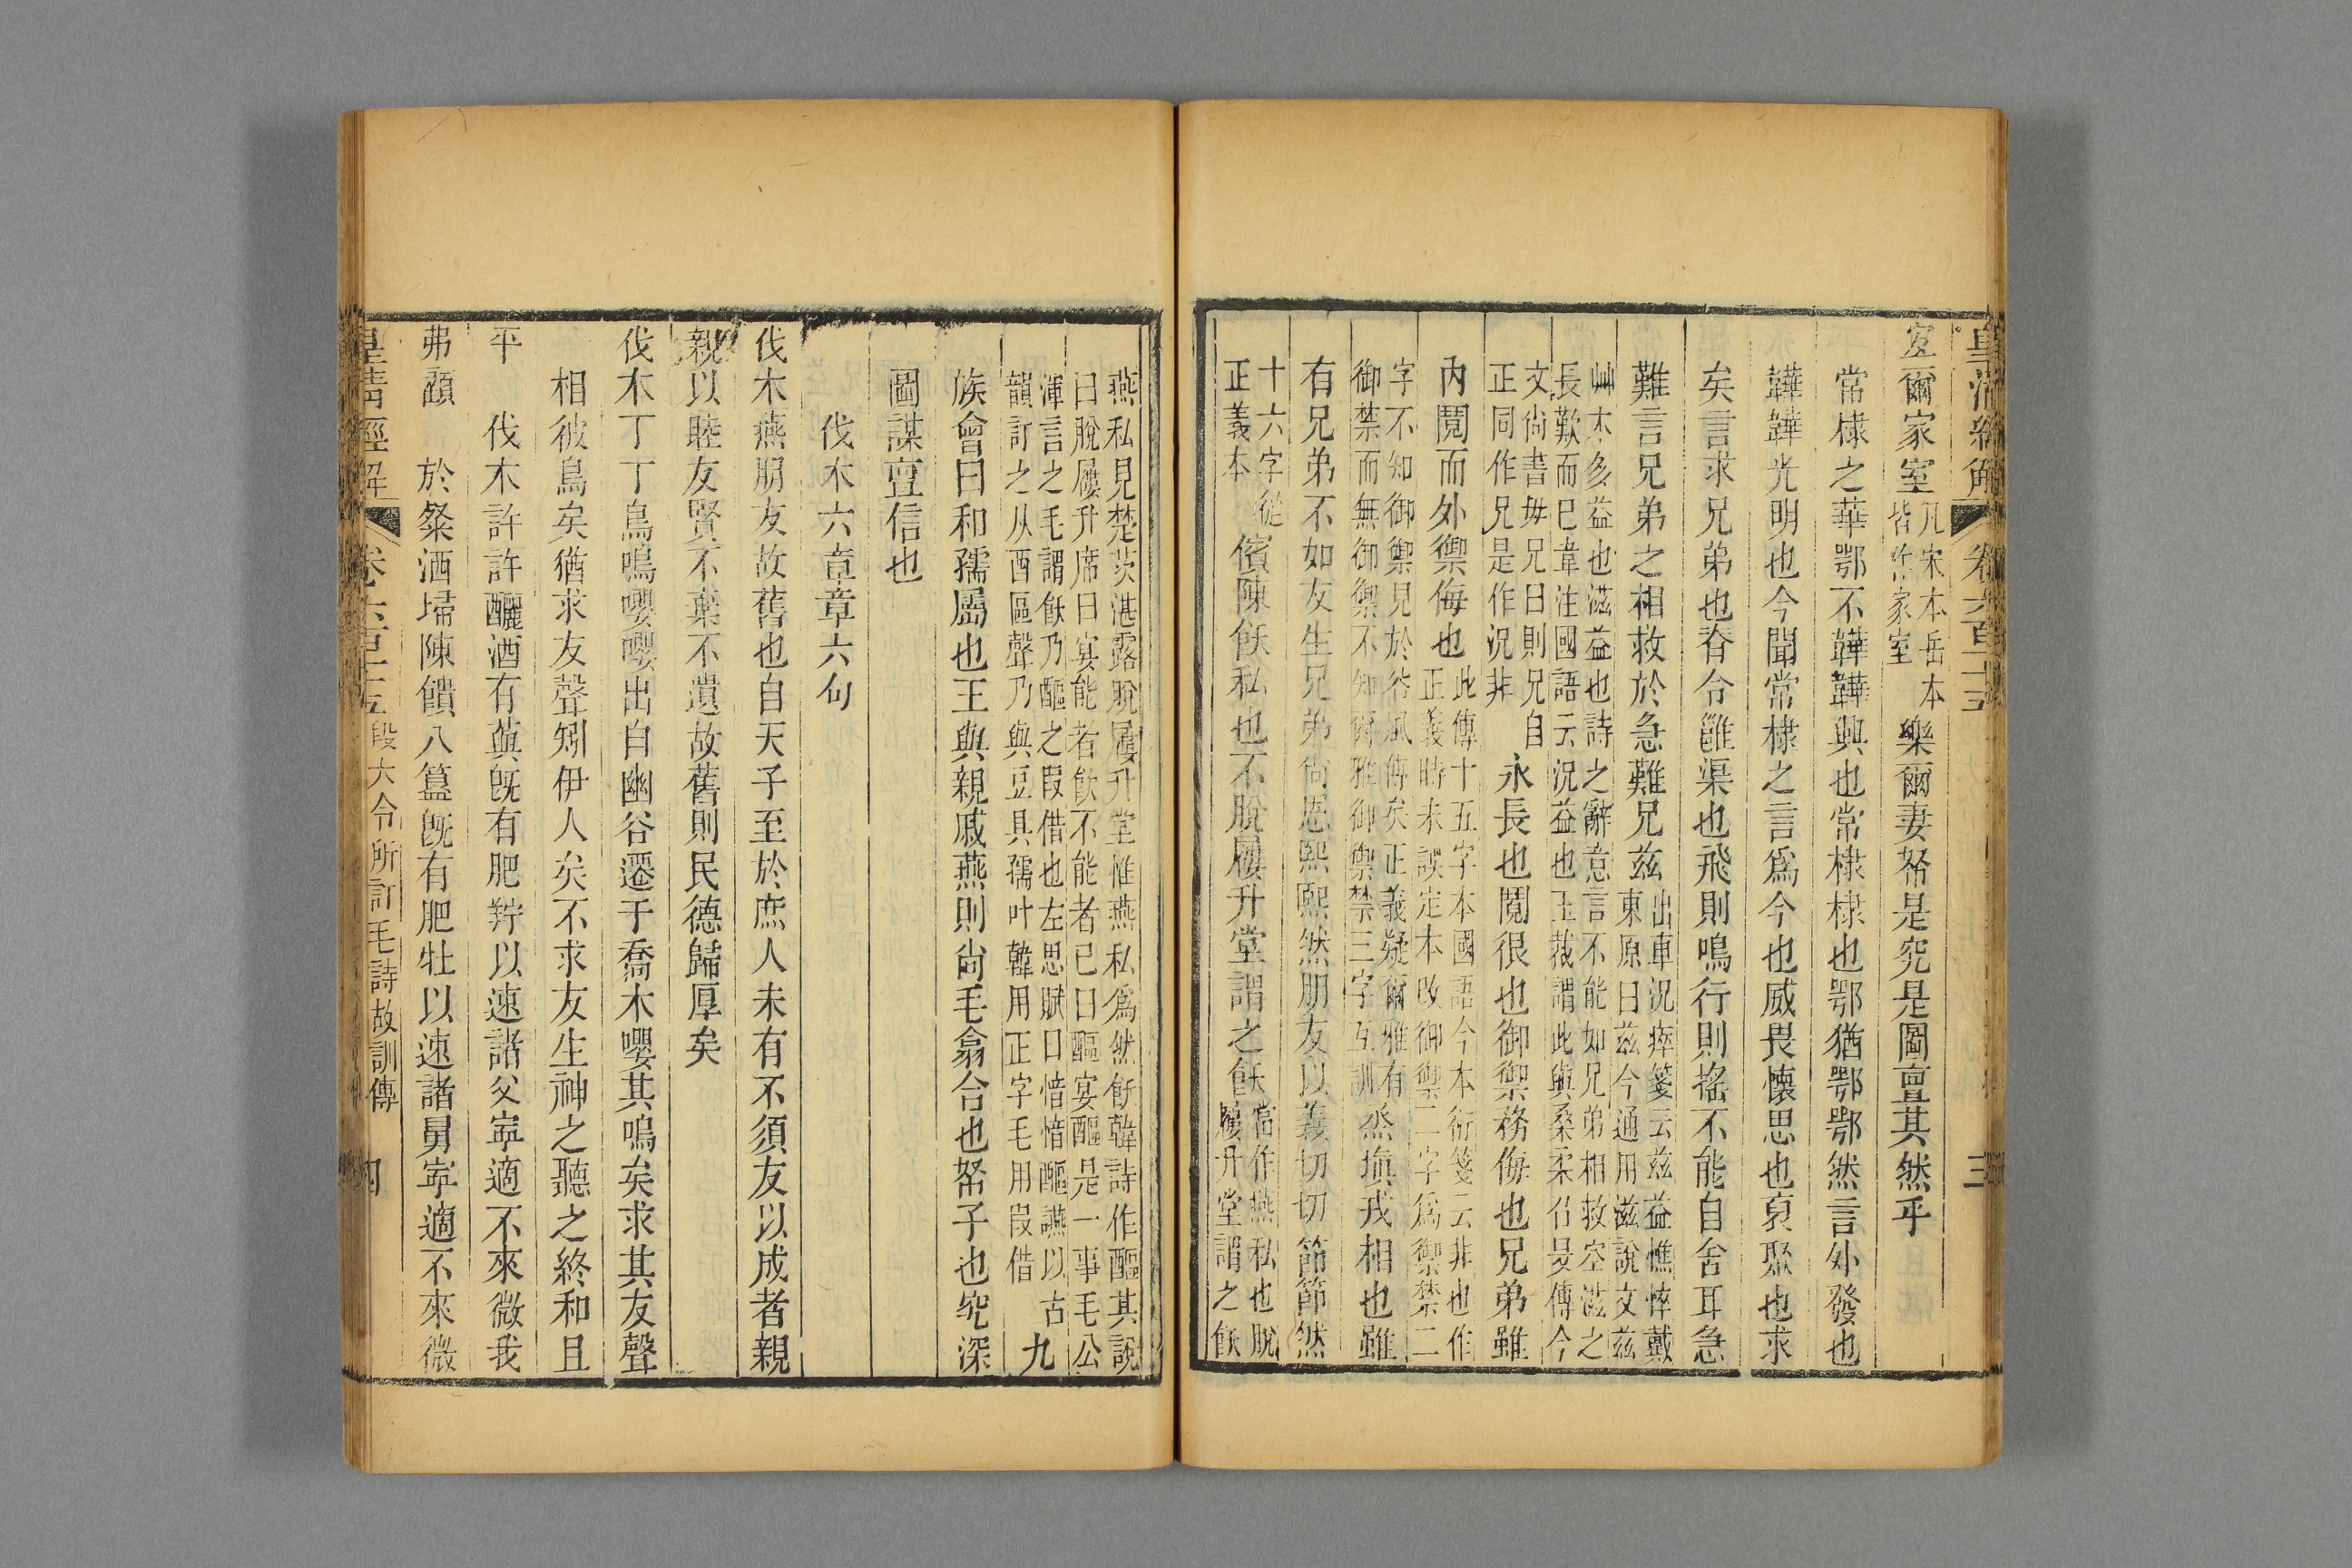 皇清經解 卷六百十三 三
宐爾家室凡宋本岳本皆作家室樂爾妻帑是究是圖亶其然乎
常棣之華鄂不韡韡興也常棣棣也鄂猶鄂鄂然言外發也
韡韡光明也今聞常棣之言爲今也威畏懷思也裒聚也求
矣言求兄弟也脊令雝渠也飛則鳴行則搖不能自舍耳急
難言兄弟之相救於急難兄茲出車況瘁箋云茲益憔悴戴東原曰茲今通用滋說文茲
艸木多益也滋益也詩之辭意言不能如兄弟相救空滋之長歎而已韋注國語云況益也玉裁謂此與桑柔召旻傳今
文尙書毋兄曰則兄自正同作兄是作況非永長也鬩很也御禦務侮也兄弟雖
內鬩而外禦侮也此傳十五字本國語今本衍箋云非也作正義時未誤定本改御禦二字爲禦禁二
字不知御禦見於谷風傳矣正義疑爾雅有御禁而無御禦不知爾雅御禦禁三字互訓烝塡戎相也雖
有兄弟不如友生兄弟尙恩熙熙然朋友以義切切節節然
十六字從正義本儐陳飫私也不脫屨升堂謂之飫當作燕私也脫屨升堂謂之飫
燕私見楚茨湛露脫屨升堂惟燕私爲然飫韓詩作醧其說
曰脫屨升席曰宴能者飮不能者已曰醧宴醧是一事毛公
渾言之毛謂飫乃醧之叚借也左思賦曰愔愔醧讌以古
韻訂之从酉區聲乃與豆具孺叶韓用正字毛用叚借九
族會曰和孺屬也王與親戚燕則尙毛翕合也帑子也究深
圖謀亶信也
伐木六章章六句
伐木燕朋友故舊也自天子至於庶人未有不須友以成者親
親以睦友賢不棄不遺故舊則民德歸厚矣
伐木丁丁鳥鳴嚶嚶出自幽谷遷于喬木嚶其鳴矣求其友聲
相彼鳥矣猶求友聲矧伊人矣不求友生神之聽之終和且
平　伐木許許釃酒有藇旣有肥羜以速諸父寧適不來微我
弗顧　於粲洒埽陳饋八簋旣有肥牡以速諸舅寧適不來微
皇淸經解 卷六百十三 段大令所訂毛詩故訓傳 四